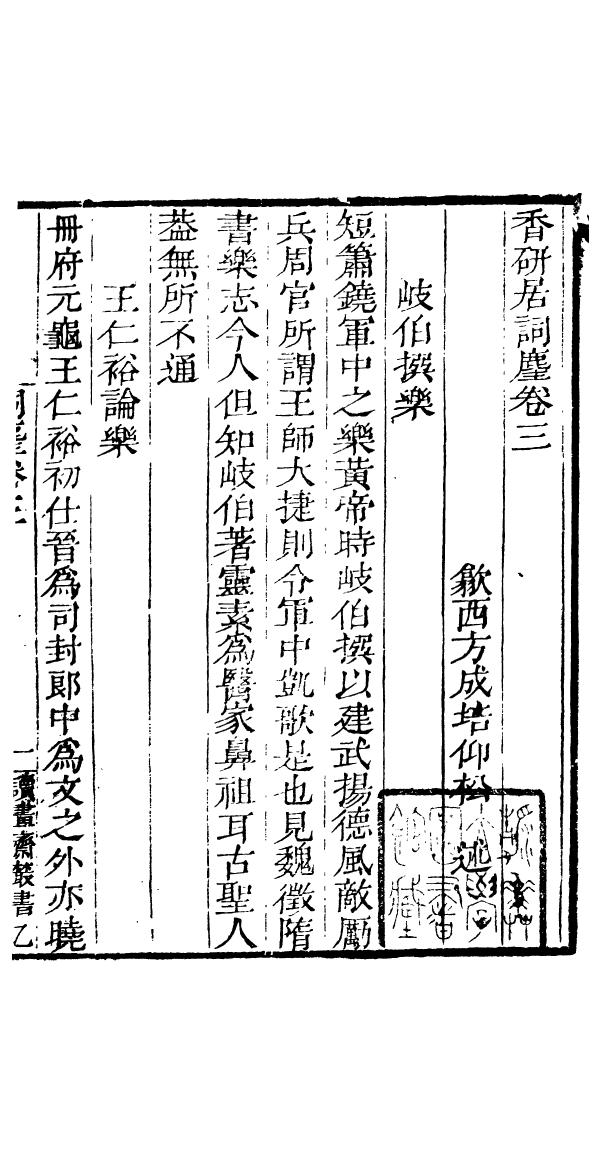 香研居詞麈卷三
歙西方成培仰松　述
岐伯撰樂
短簫鐃軍中之樂黃帝時岐伯撰以建武揚德風敵勵
兵周官所謂王師大捷則令軍中凱歌是也見魏徵隋
書樂志今人但知岐伯著靈素為醫家鼻祖耳古聖人
葢無所不通
王仁裕論樂
冊府元龜王仁裕初仕晉為司封郎中為文之外亦曉
詞麈卷三　一　讀畫齋叢書乙